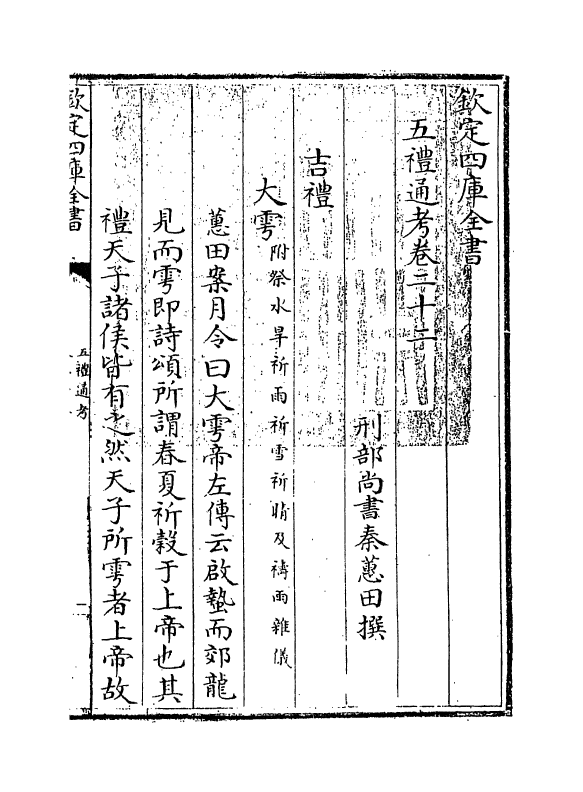 欽定四庫全書
五禮通考卷二十二
刑部尚書秦蕙田撰
吉禮
大雩附祭水旱祈雨祈雪祈晴及禱雨雜儀
蕙田案月令曰大雩帝左傳云啟蟄而郊龍
見而雩即詩頌所謂春夏祈榖于上帝也其
禮天子諸侯皆有之然天子所雩者上帝故
欽定四庫全書
五禮通考
一